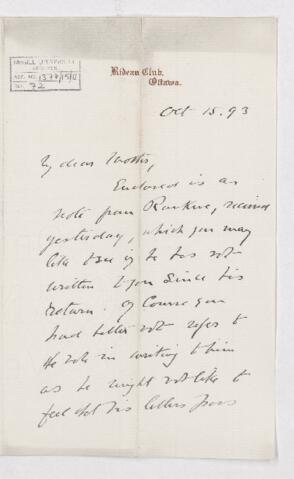 McGILL UNIVERSITY
ARCHIVES
ACC. NO. 1377/15/2
NO. 72
Rideau Club,
Ottawa.
Oct 15. 93
My dear
Enclosed is a
note from received
yesterday, which you may
like to see if he has not
written to you since his
return. Of course you
had better not refer to
the note in writing to him
as he might not like to
feel that his letters pass